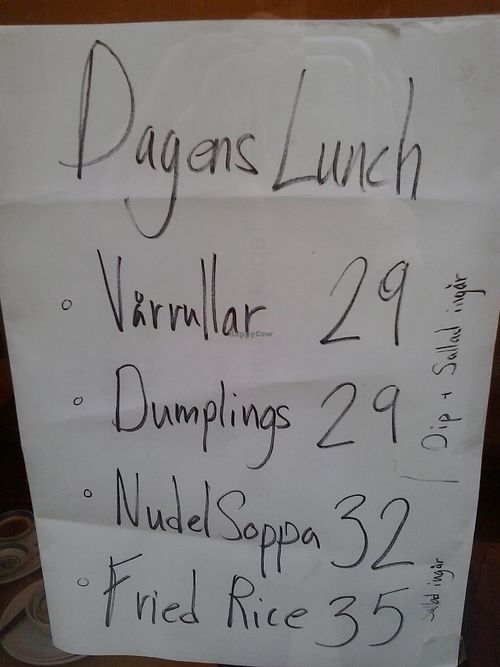 Dagens Lunch
Vårrullar 29
Dumplings 29
Dip + Sallad ingår
NudelSoppa 32
Fried Rice 35
Salad ingår
HappyCow